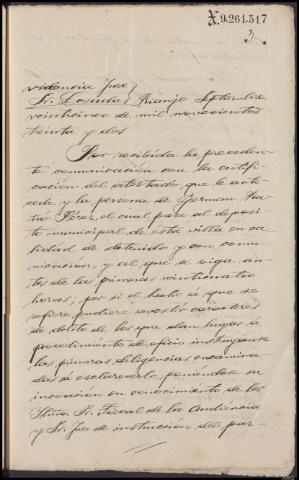 X.9.261.317
3
videncia Juez
Sr. Losada} Naranjo Septiembre
veinticinco de mil novecientos
treinta y dos
Por recibida la preceden-
te comunicación con la certifi-
cación del atestado, que le ante-
cede y la persona de German
Pérez, el cual pase al deposi-
to municipal de esta villa en ca-
lidad de detenido y con comu-
nicación, y al que se oiga, an-
tes de las primeras veinticuatro
horas, por si el hecho á que se
refiere pudiere revestir caracteres
de delito de los que dan lugar á
procedimiento de oficio instruyanse
las primeras diligencias encamina-
das á esclarecerlo, poniéndose su
incoación en conocimiento de los
Iltmo. Sr. Fiscal de la Audiencia
y Sr. Juez de instrucción del par-